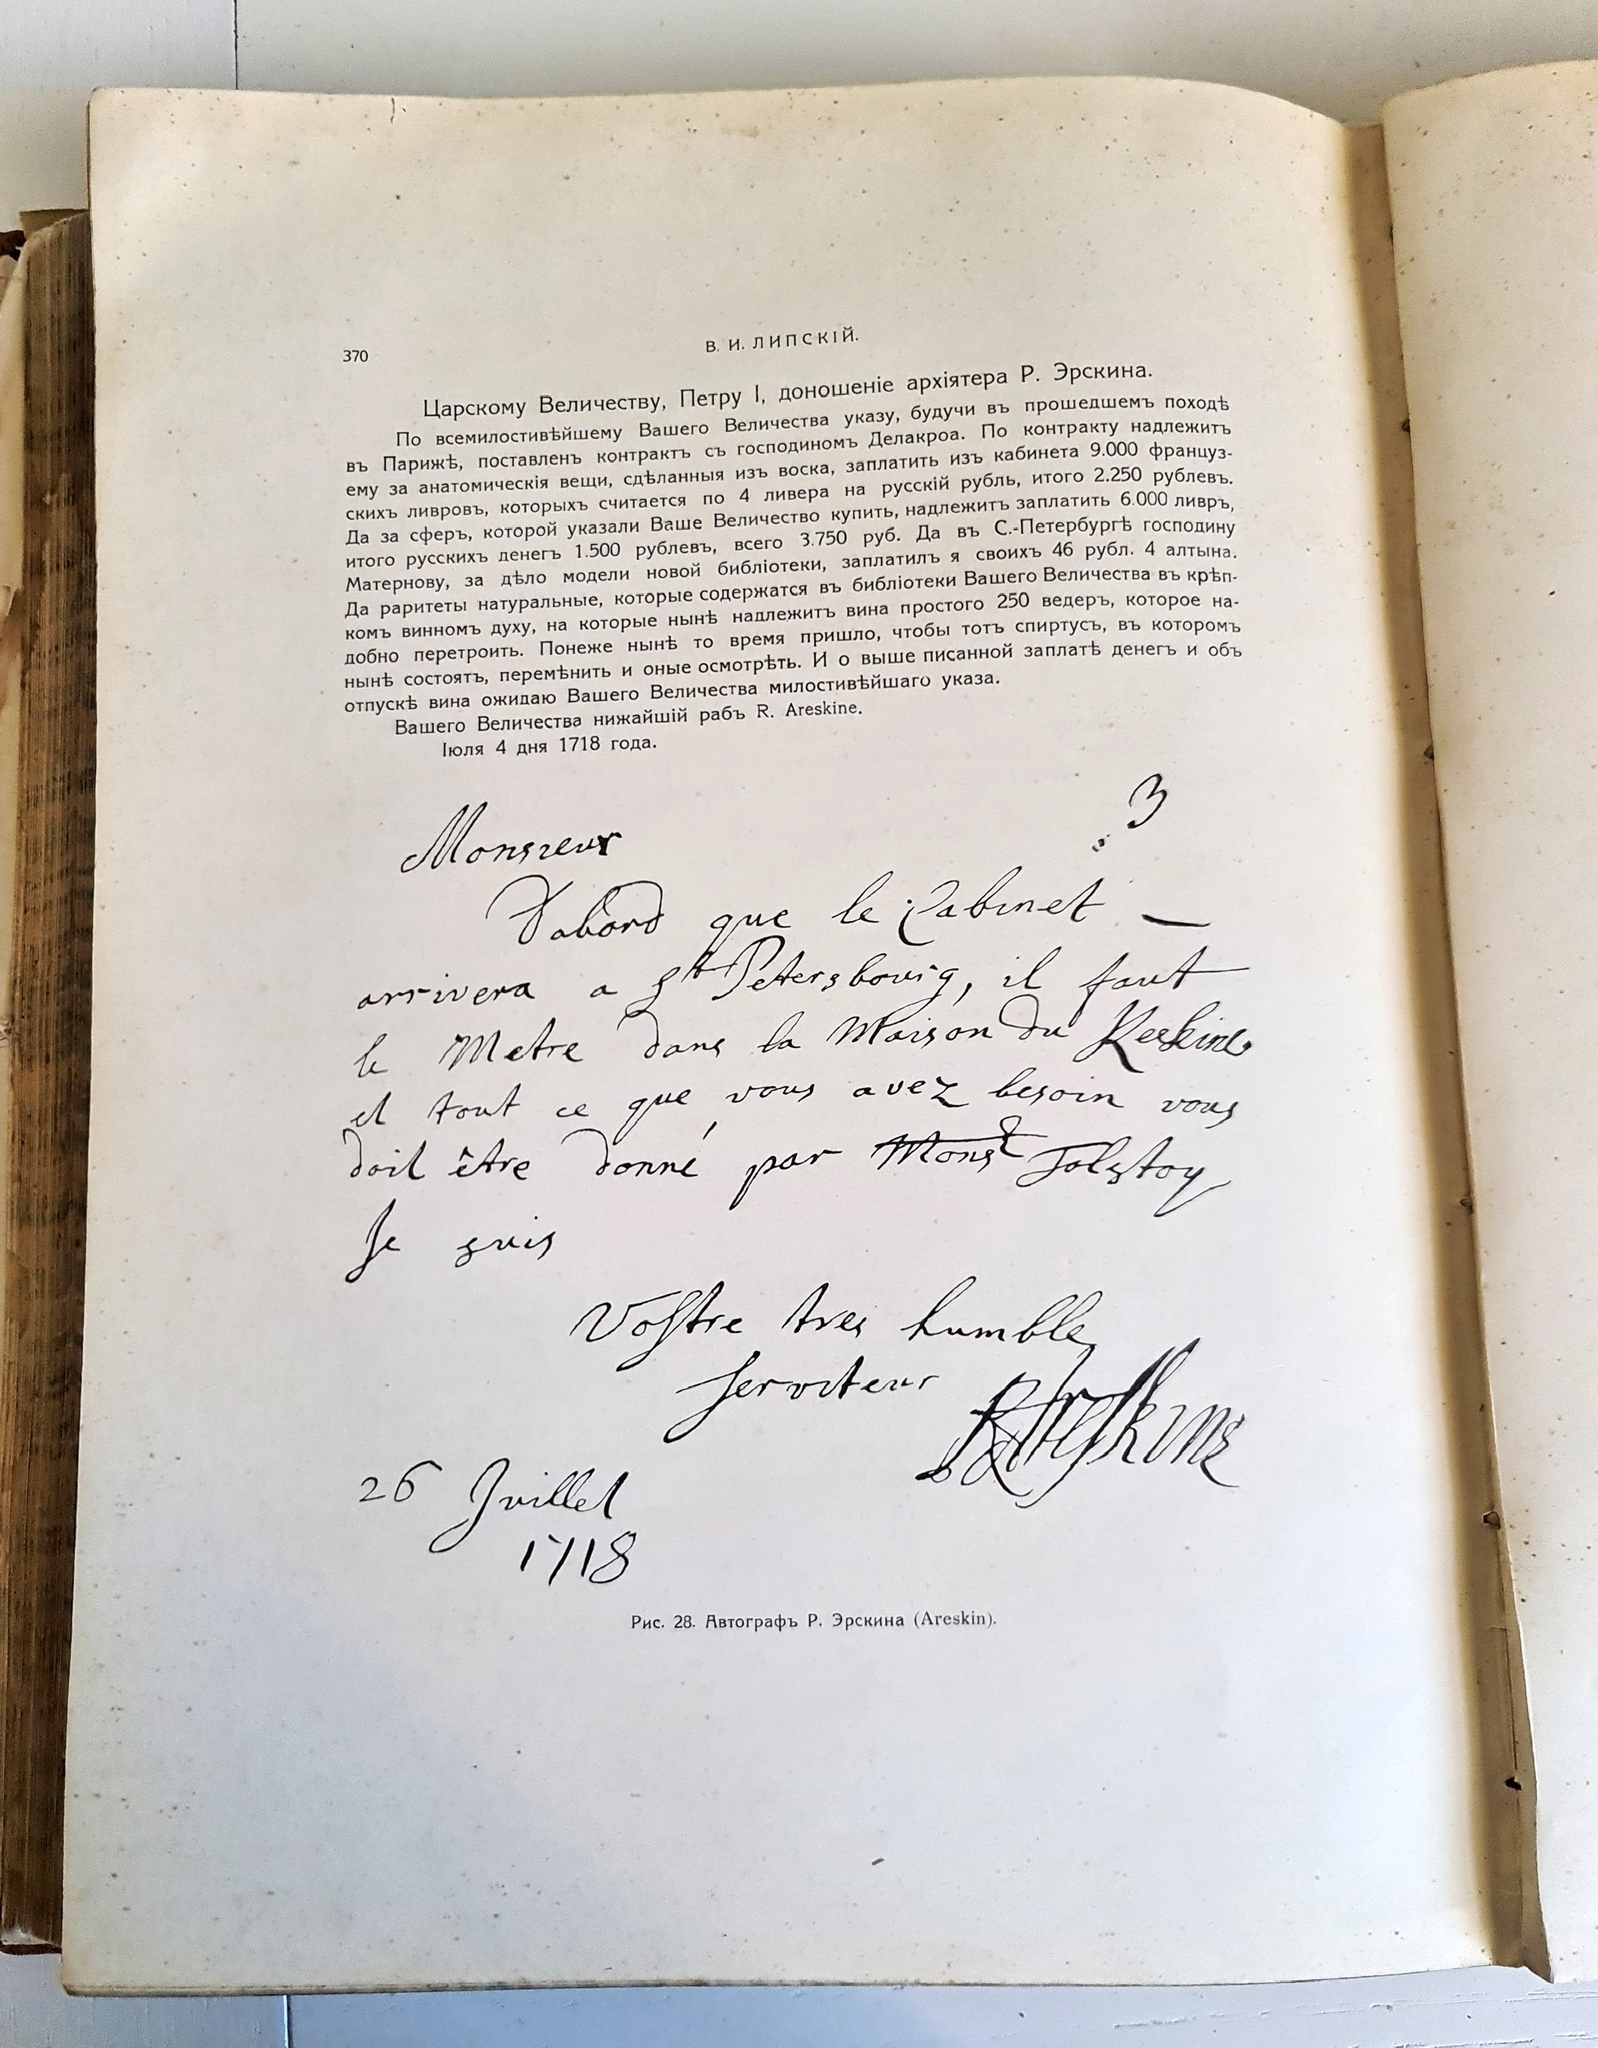 370
В. И. ЛИПСКІЙ.
Царскому Величеству, Петру I, доношеніе архіятера Р. Эрскина.
По всемилостивѣйшему Вашего Величества указу, будучи въ прошедшемъ походѣ
въ Парижѣ, поставленъ контрактъ съ господиномъ Делакроа. По контракту надлежитъ
ему за анатомическія вещи, сдѣланныя изъ воска, заплатить изъ кабинета 9.000 француз-
скихъ ливровъ, которыхъ считается по 4 ливера на русскій рубль, итого 2.250 рублевъ.
Да за сферъ, которой указали Ваше Величество купить, надлежитъ заплатить 6.000 ливръ,
итого русскихъ денегъ 1.500 рублевъ, всего 3.750 руб. Да въ С.-Петербургѣ господину
Матернову, за дѣло модели новой библіотеки, заплатилъ я своихъ 46 рубл. 4 алтына.
Да раритеты натуральные, которые содержатся въ библіотеки Вашего Величества въ крѣп-
комъ винномъ духу, на которые нынѣ надлежитъ вина простого 250 ведеръ, которое на-
добно перетроить. Понеже нынѣ то время пришло, чтобы тотъ спиртусъ, въ которомъ
нынѣ состоятъ, перемѣнить и оные осмотрѣть. И о выше писанной заплатѣ денегъ и объ
отпускѣ вина ожидаю Вашего Величества милостивѣйшаго указа.
Вашего Величества нижайшій рабъ R. Areskine.
Іюля 4 дня 1718 года.
3
Monsieur
D'abord que le Cabinet —
arrivera a St Petersbourg, il faut
le Metre dans la Maison du
et tout ce que vous avez besoin vous
doit être donné par Monsr Tolstoy
Je suis
Vostre tres humble
serviteur
R Areskine
26 Juillet
1718
Рис. 28. Автографъ Р. Эрскина (Areskin).